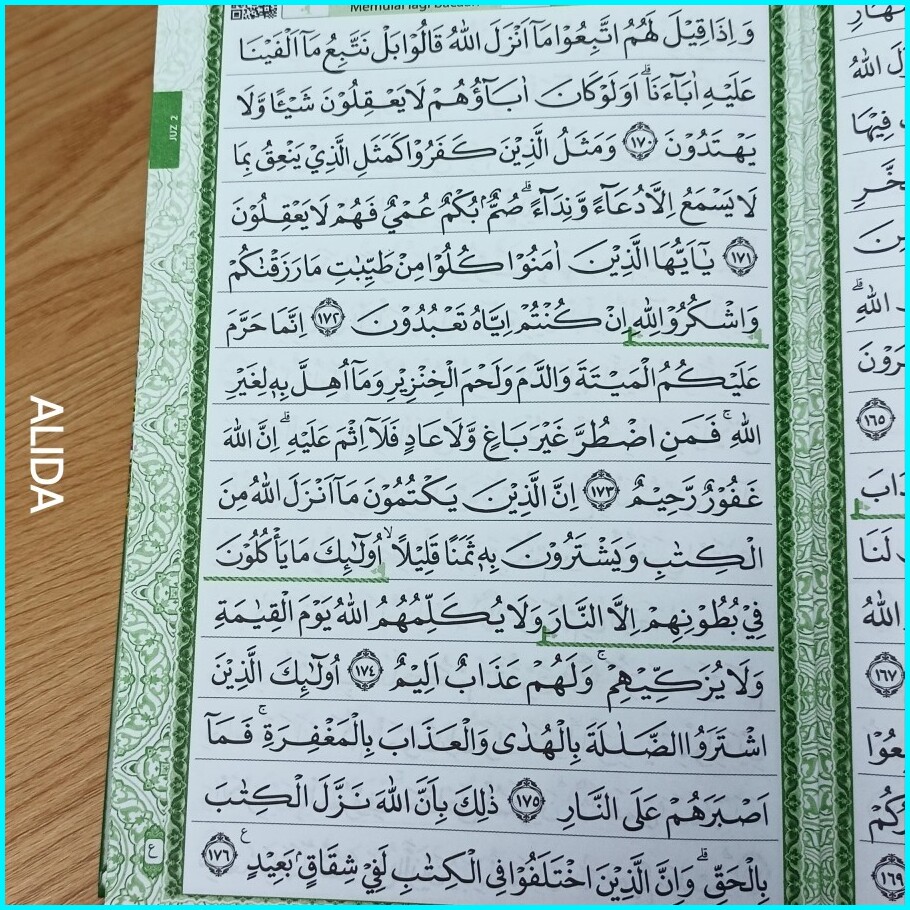 Memulai lagi Bacaan
JUZ 2
وَاِذَا قِيْلَ لَهُمُ اتَّبِعُوْا مَآ اَنْزَلَ اللّٰهُ قَالُوْا بَلْ نَتَّبِعُ مَآ اَلْفَيْنَا
عَلَيْهِ اٰبَآءَنَاۗ اَوَلَوْ كَانَ اٰبَاۤؤُهُمْ لَا يَعْقِلُوْنَ شَيْـًٔا وَّلَا
يَهْتَدُوْنَ ١٧٠ وَمَثَلُ الَّذِيْنَ كَفَرُوْا كَمَثَلِ الَّذِيْ يَنْعِقُ بِمَا
لَا يَسْمَعُ اِلَّا دُعَاۤءً وَّنِدَاۤءًۗ صُمٌّۢ بُكْمٌ عُمْيٌ فَهُمْ لَا يَعْقِلُوْنَ
١٧١ يٰٓاَيُّهَا الَّذِيْنَ اٰمَنُوْا كُلُوْا مِنْ طَيِّبٰتِ مَا رَزَقْنٰكُمْ
وَاشْكُرُوْا لِلّٰهِ اِنْ كُنْتُمْ اِيَّاهُ تَعْبُدُوْنَ ١٧٢ اِنَّمَا حَرَّمَ
عَلَيْكُمُ الْمَيْتَةَ وَالدَّمَ وَلَحْمَ الْخِنْزِيْرِ وَمَآ اُهِلَّ بِهٖ لِغَيْرِ
اللّٰهِ ۚ فَمَنِ اضْطُرَّ غَيْرَ بَاغٍ وَّلَا عَادٍ فَلَآ اِثْمَ عَلَيْهِ ۗ اِنَّ اللّٰهَ
غَفُوْرٌ رَّحِيْمٌ ١٧٣ اِنَّ الَّذِيْنَ يَكْتُمُوْنَ مَآ اَنْزَلَ اللّٰهُ مِنَ
الْكِتٰبِ وَيَشْتَرُوْنَ بِهٖ ثَمَنًا قَلِيْلًاۙ اُولٰۤىِٕكَ مَا يَأْكُلُوْنَ
فِيْ بُطُوْنِهِمْ اِلَّا النَّارَ وَلَا يُكَلِّمُهُمُ اللّٰهُ يَوْمَ الْقِيٰمَةِ
وَلَا يُزَكِّيْهِمْ ۚ وَلَهُمْ عَذَابٌ اَلِيْمٌ ١٧٤ اُولٰۤىِٕكَ الَّذِيْنَ
اشْتَرَوُا الضَّلٰلَةَ بِالْهُدٰى وَالْعَذَابَ بِالْمَغْفِرَةِ ۚ فَمَآ
اَصْبَرَهُمْ عَلَى النَّارِ ١٧٥ ذٰلِكَ بِاَنَّ اللّٰهَ نَزَّلَ الْكِتٰبَ
بِالْحَقِّ ۗ وَاِنَّ الَّذِيْنَ اخْتَلَفُوْا فِى الْكِتٰبِ لَفِيْ شِقَاقٍۢ بَعِيْدٍ ࣖ ١٧٦
ع
اللّٰهُ
فِيْهَا
اللّٰهِ ۗ
١٦٥
لَنَا
اللّٰهُ
١٦٧
١٦٩
ALIDA